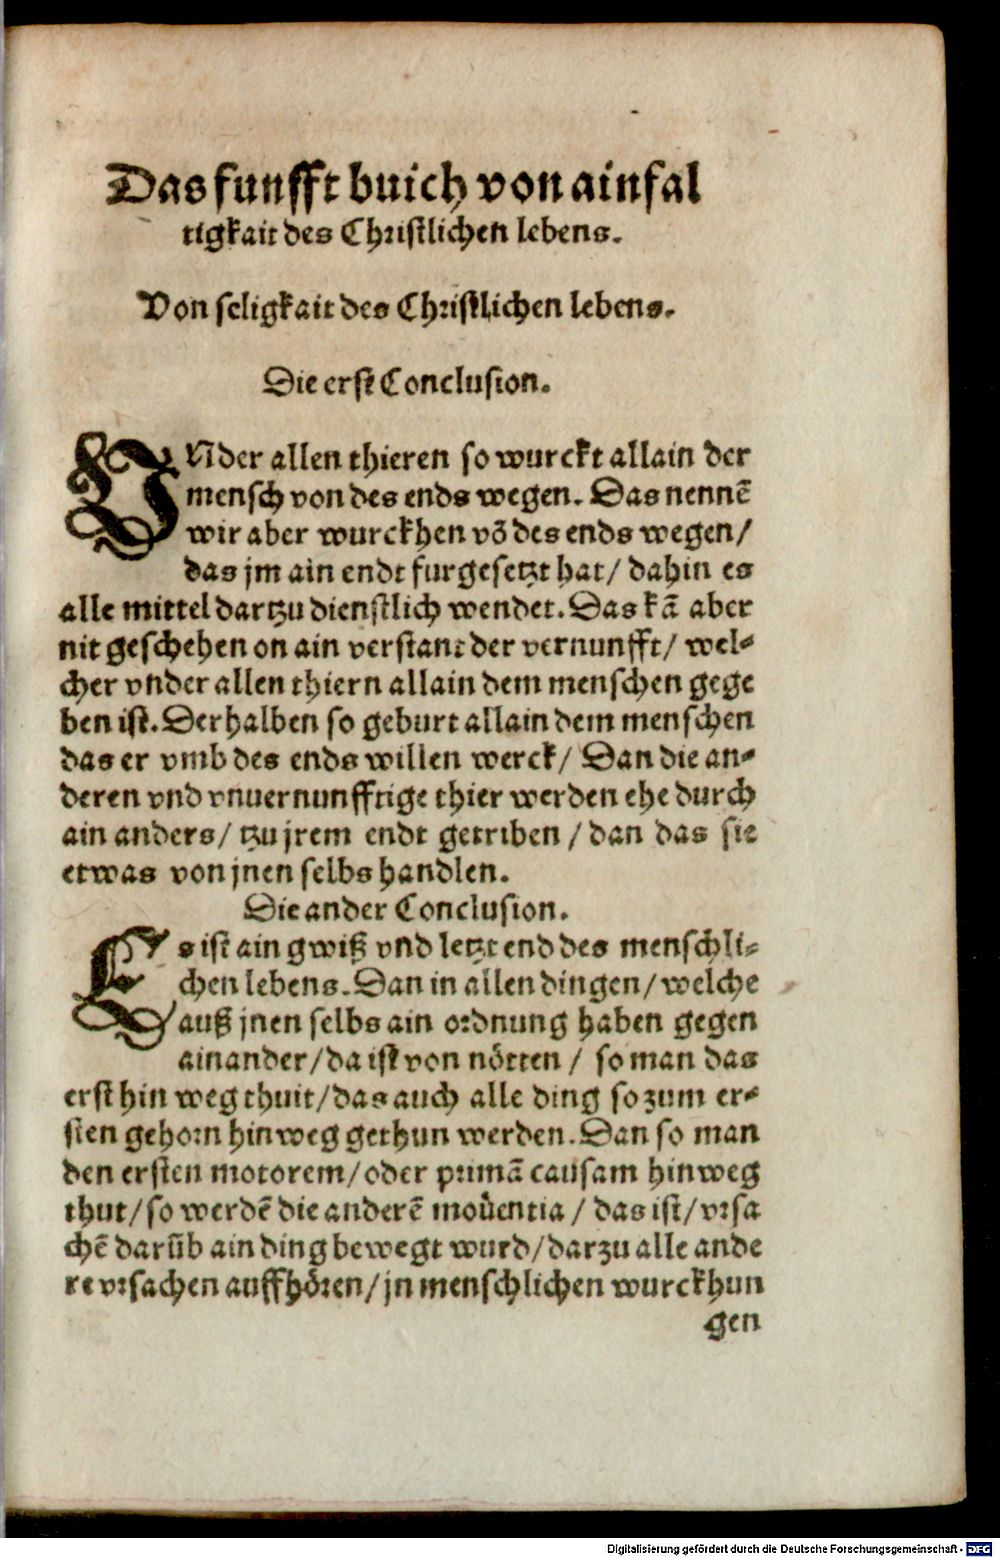 Das funfft buich von ainfal
tigkait des Christlichen lebens.
Von seligkait des Christlichen lebens.
Die erst Conclusion.
VNder allen thieren so wurckt allain der
mensch von des ends wegen. Das nennē
wir aber wurckhen vō des ends wegen/
das jm ain endt furgesetzt hat/ dahin es
alle mittel dartzu dienstlich wendet. Das kā aber
nit geschehen on ain verstant der vernunfft/ wel-
cher vnder allen thiern allain dem menschen gege
ben ist. Derhalben so geburt allain dem menschen
das er vmb des ends willen werck/ Dan die an-
deren vnd vnuernunfftige thier werden ehe durch
ain anders/ tzu jrem endt getriben / dan das sie
etwas von jnen selbs handlen.
Die ander Conclusion.
Es ist ain gwiß vnd letzt end des menschli-
chen lebens. Dan in allen dingen/ welche
auß jnen selbs ain ordnung haben gegen
ainander/ da ist von nötten / so man das
erst hin weg thuit/ das auch alle ding so zum er-
sten gehorn hinweg gethun werden. Dan so man
den ersten motorem/ oder primā causam hinweg
thut/ so werdē die anderē mouentia / das ist/ vrsa
chē darūb ain ding bewegt wurd/ darzu alle ande
re vrsachen auffhören/ jn menschlichen wurckhun
gen
Digitalisierung gefördert durch die Deutsche Forschungsgemeinschaft - DFG